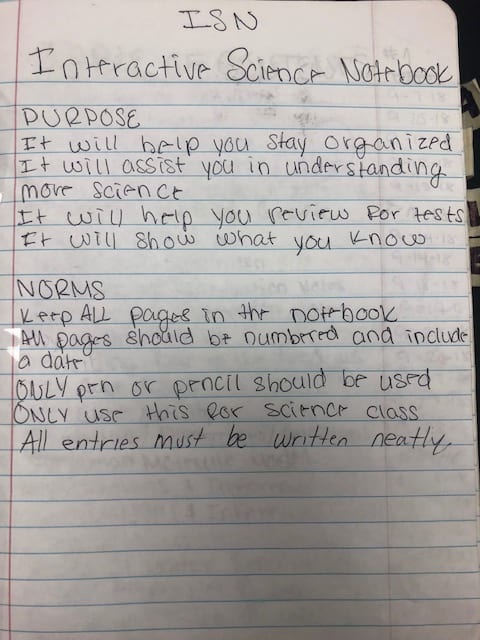 ISN
Interactive Science Notebook
PURPOSE
It will help you stay organized
It will assist you in understanding
more science
It will help you review for tests
It will show what you know
NORMS
Keep ALL pages in the notebook
All pages should be numbered and include
a date
ONLY pen or pencil should be used
ONLY use this for science class
All entries must be written neatly